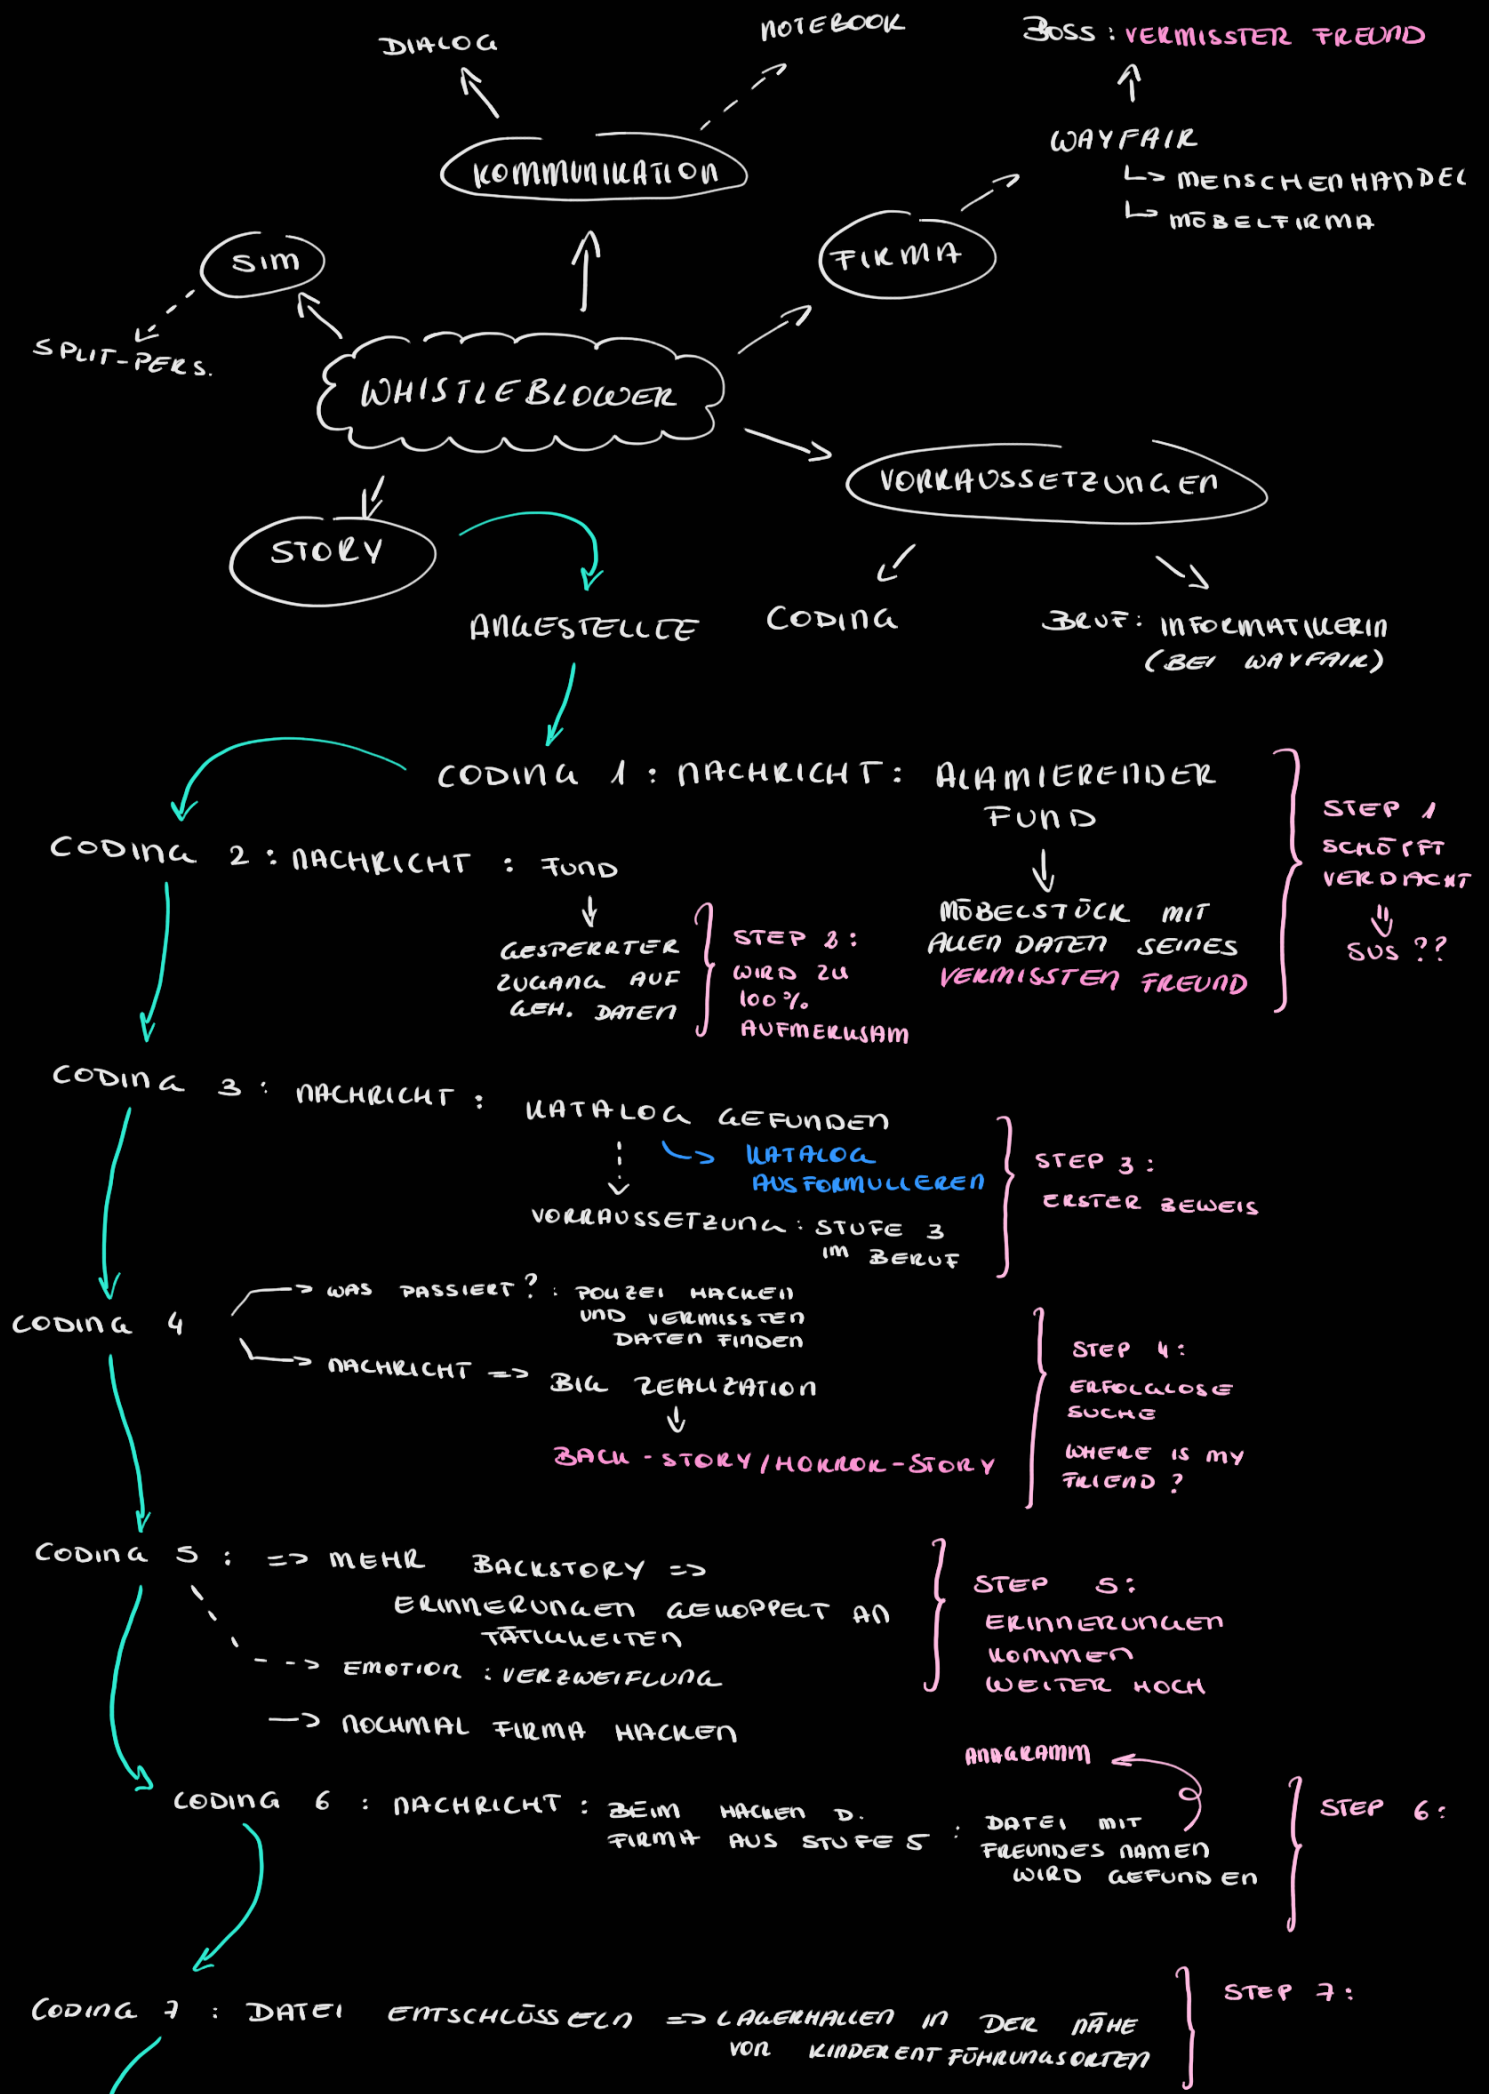 DIALOG
NOTEBOOK
BOSS : VERMISSTER FREUND
KOMMUNIKATION
WAYFAIR
MENSCHENHANDEL
MÖBELFIRMA
FIRMA
SIM
SPLIT-PERS.
WHISTLEBLOWER
VORRAUSSETZUNGEN
STORY
ANGESTELLTE
CODING
BRUF: INFORMATIKERIN
(BEI WAYFAIR)
CODING 1 : NACHRICHT : ALAMIERENDER
FUND
MÖBELSTÜCK MIT
ALLEN DATEN SEINES
VERMISSTEN FREUND
STEP 1
SCHÖPFT
VERDACHT
SUS ??
CODING 2 : NACHRICHT : FUND
GESPERRTER
ZUGANG AUF
GEH. DATEN
STEP 2 :
WIRD ZU
100 %
AUFMERKSAM
CODING 3 : NACHRICHT : KATALOG GEFUNDEN
KATALOG
AUSFORMULLEREN
VORRAUSSETZUNG : STUFE 3
IM BERUF
STEP 3 :
ERSTER BEWEIS
CODING 4
WAS PASSIERT? : POLIZEI HACKEN
UND VERMISSTEN
DATEN FINDEN
NACHRICHT => BIG REALIZATION
BACK - STORY / HORROR - STORY
STEP 4 :
ERFOLGLOSE
SUCHE
WHERE IS MY
FRIEND ?
CODING 5 : => MEHR BACKSTORY =>
ERINNERUNGEN GEKOPPELT AN
TÄTIGKEITEN
EMOTION : VERZWEIFLUNG
NOCHMAL FIRMA HACKEN
STEP 5 :
ERINNERUNGEN
KOMMEN
WEITER HOCH
ANAGRAMM
CODING 6 : NACHRICHT : BEIM HACKEN D.
FIRMA AUS STUFE 5 : DATEI MIT
FREUNDES NAMEN
WIRD GEFUNDEN
STEP 6 :
CODING 7 : DATEI ENTSCHLÜSSELN => LAGERHALLEN IN DER NÄHE
VON KINDERENTFÜHRUNGSORTEN
STEP 7 :